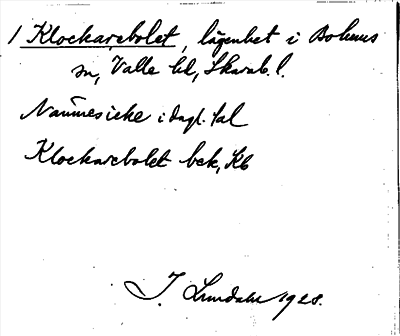 1 Klockarebolet, lägenhet i Bolums
sn, Valle hd, Skarab. l.
Nämnes icke i dagl. tal
Klockarebolet bek, Kb
J. Lundahl 1928.